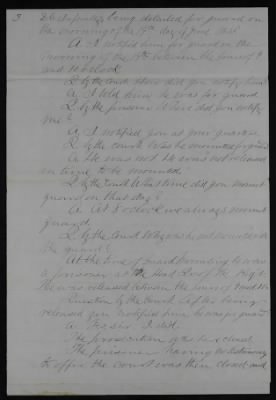 3
being detailed for guard on
the morning of the 9th day of June 1865
A I notified him for guard on the
morning of the 9th between the hours of 9
and 10 o'clock
Q by the Court where did you notify him
A I told him he was for guard
Q by the prisoner Where did you notify
me?
A I notified you at your quarters
Q by the court Was he mounted for guard
A He was not He was not released
in time to be mounted
Q by the Court What time did you mount
guard on that day?
A At 8 o'clock we always mount
guard
Q by the Court Why was he not mounted on
the guard?
At the time of guard mounting he was
a prisoner at the Head Qrs of the Regt
He was released between the hours of 9 and 10
Question by the Court after being
released you notified him he was for guard
A Yes Sir I did
The prosecution was here closed
The prisoner having no testimony
to offer the court was then closed and